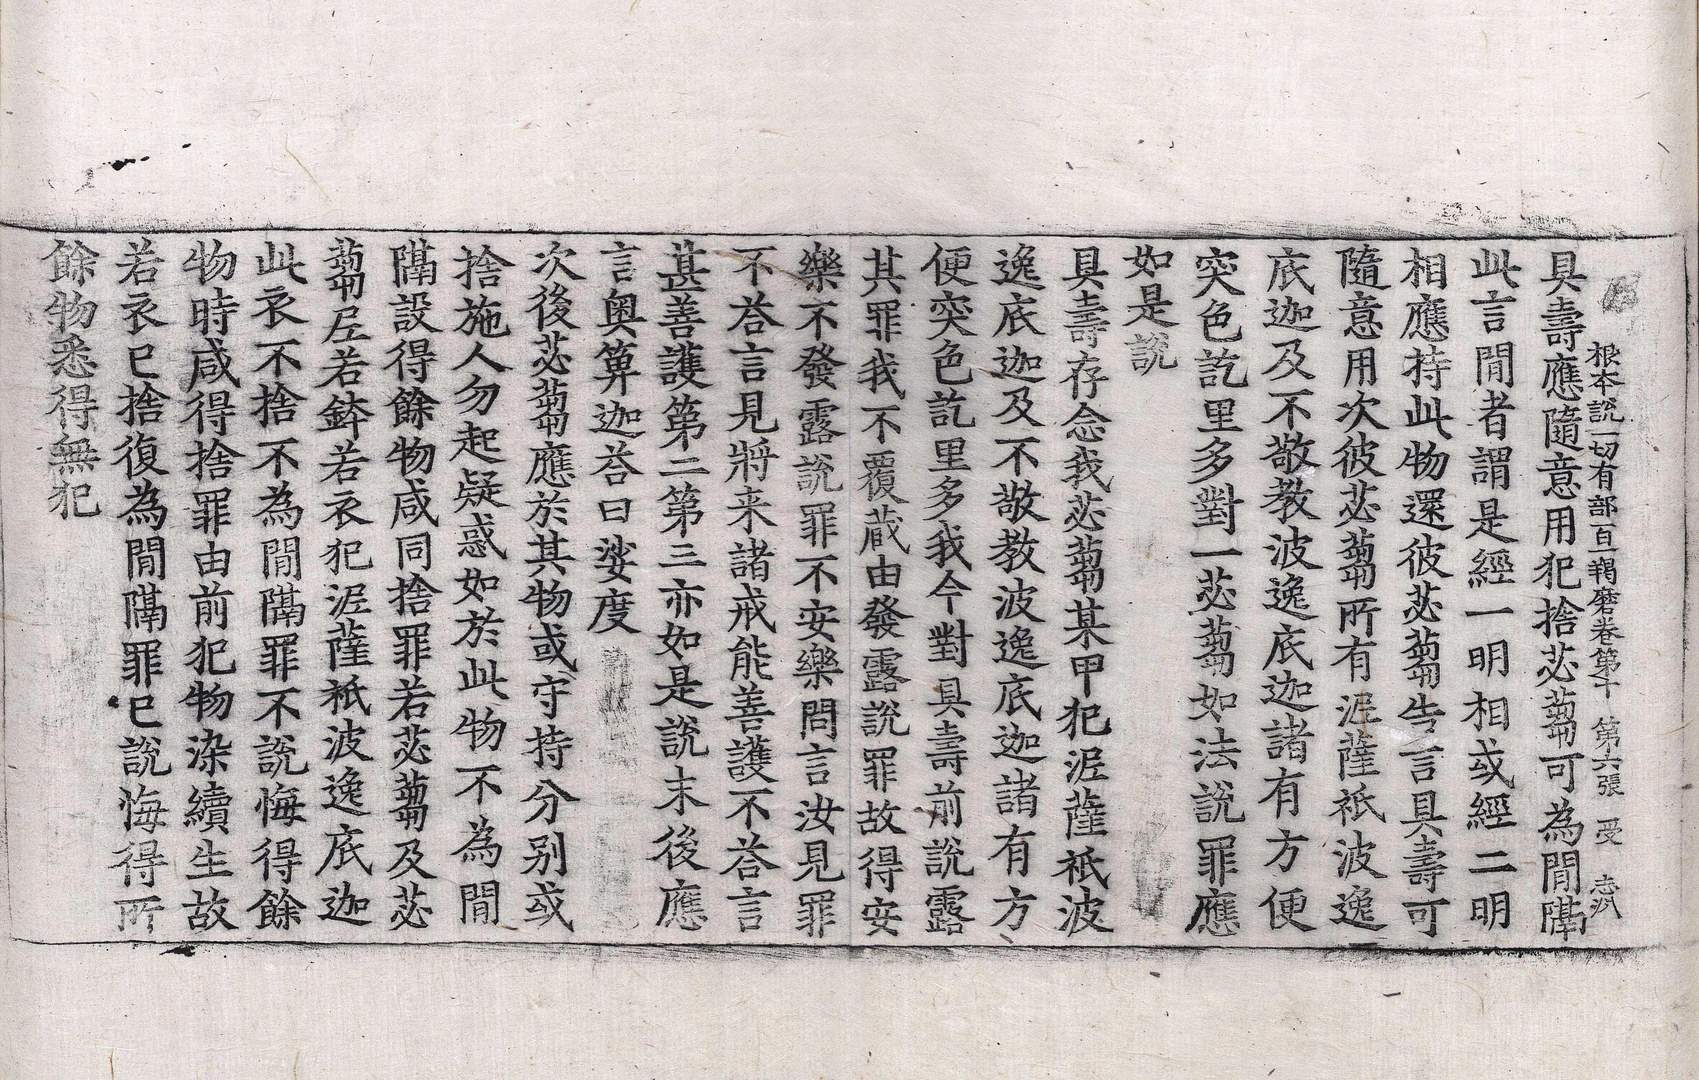 根本說一切有部百一羯磨卷第十 第六張 受 志洪
具壽應隨意用犯捨苾蒭可為閒隔
此言閒者謂是經一明相或經二明
相應持此物還彼苾蒭告言具壽可
隨意用次彼苾蒭所有泥薩祇波逸
底迦及不敬教波逸底迦諸有方便
突色訖里多對一苾蒭如法說罪應
如是說
具壽存念我苾蒭某甲犯泥薩祇波
逸底迦及不敬教波逸底迦諸有方
便突色訖里多我今對具壽前說露
其罪我不覆藏由發露說罪故得安
樂不發露說罪不安樂問言汝見罪
不荅言見將来諸戒能善護不荅言
甚善護第二第三亦如是說末後應
言奧箄迦荅曰娑度
次後苾蒭應於其物或守持分别或
捨施人勿起疑惑如於此物不為閒
隔設得餘物咸同捨罪若苾蒭及苾
蒭尼若鉢若衣犯泥薩祇波逸底迦
此衣不捨不為閒隔罪不說悔得餘
物時咸得捨罪由前犯物染續生故
若衣已捨復為閒隔罪已說悔得所
餘物悉得無犯